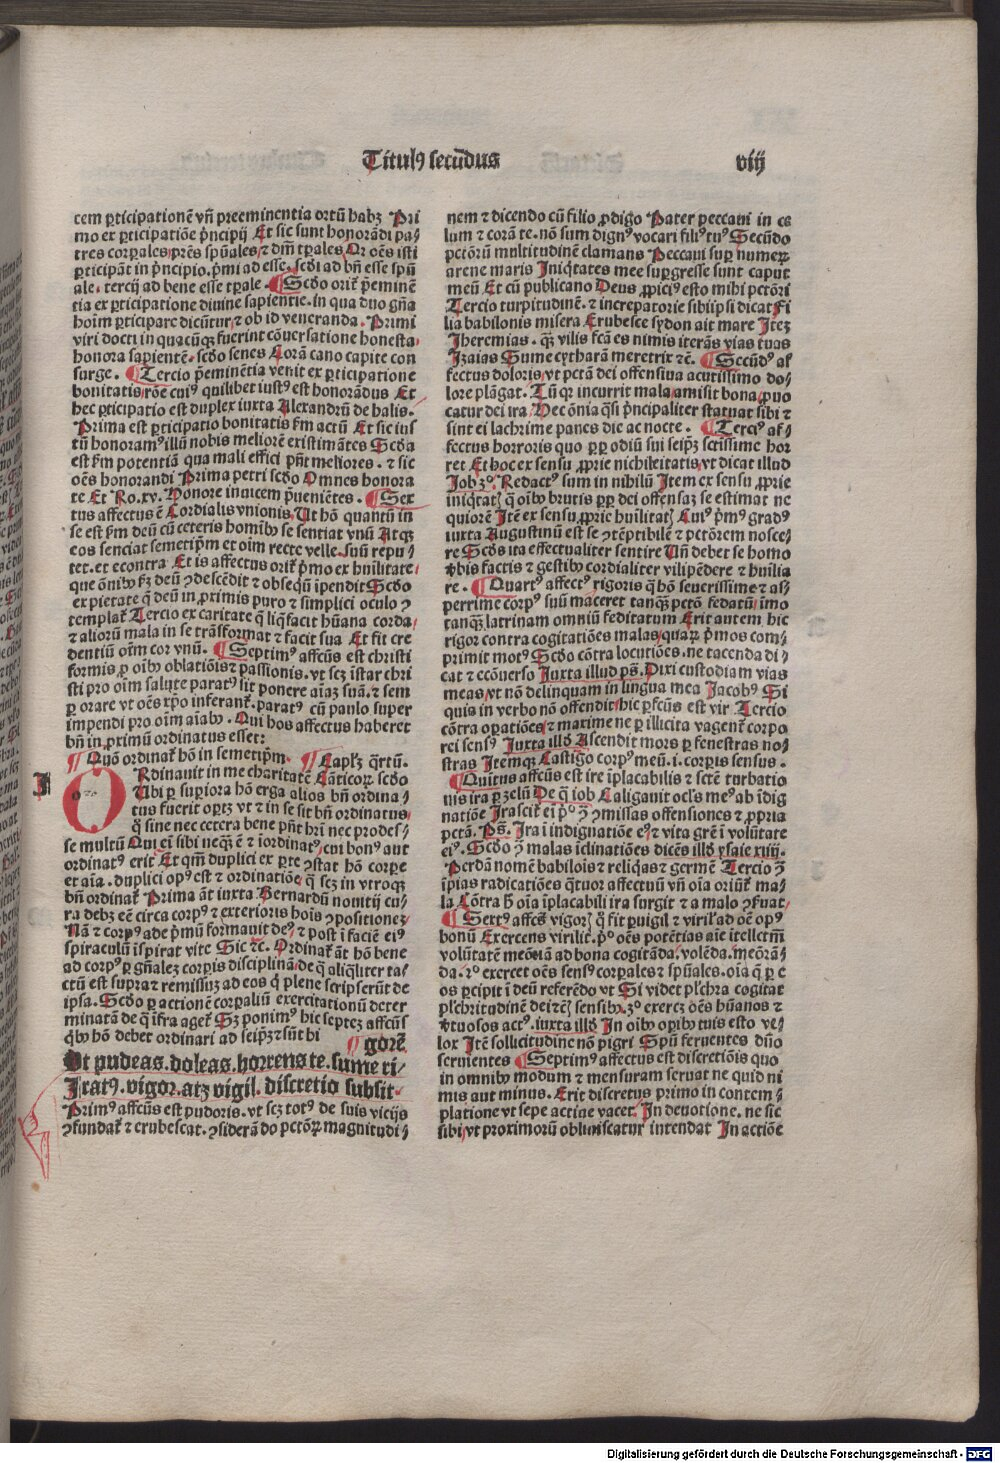 Titulꝰ secūdus
viij
cem ꝑticipationē vñ preeminentia ortū habꝫ Pri
mo ex ꝑticiꝑatiōe p̄ncipij Et sic sunt honorādi pa⸗
tres corꝑales p̄res spūales ⁊ dn̄i tꝑales Qr oēs isti
ꝑticipāt in p̄ncipio. p̄mi ad esse. scd̄i ad bn̄ esse spū
ale. tercij ad bene esse tꝑale. ¶ Scd̄o orit᷑ p̄eminē
tia ex ꝑticipatione diuine sapientie. in qua duo gn̄a
hoīm ꝑticipare dicūtur ⁊ ob id veneranda. Primi
viri docti in quacūqꝫ fuerint cōuersatione honesta.
honora sapientē. scd̄o senes Corā cano capite con
surge. ¶ Tercio p̄eminētia venit ex ꝑticipatione
bonitatis rōe cuiꝰ quilibet iustꝰ est honorādus Et
hec ꝑticipatio est duplex iuxta Alexandrū de halis.
Prima est ꝑticipatio bonitatis ẜm actū Et sic ius
tū honoramꝰ illū nobis meliorē existimātes Scd̄a
est ẜm potentiā qua mali effici pn̄t meliores. ⁊ sic
oēs honorandi Prima petri scd̄o Omnes honora
te Et Ro.xv. Honore inuicem p̄ueniētes. ¶ Sex
tus affectus ē Cordialis vnionis Ut hō quantū in
se est ẜm deū cū ceteris homībꝰ se sentiat vnū Atqꝫ
eos senciat semetip̄m et oīm recte velle. suū repu⸗
tet. et econtra Et is affectus orit᷑ p̄mo ex hūilitate.
que oīnibꝰ ꝓꝫ deū ꝯdescēdit ⁊ obseqūū īpendit Scd̄o
ex pietate q̄ deū in ꝓximis puro ⁊ simplici oculo ꝯ
templat᷑ Tercio ex caritate q̄ liq̄facit hūana corda.
⁊ aliorū mala in se trāsformat ⁊ facit sua Et fit cre
dentiū oīm cor vnū. ¶ Septimꝰ affcūs est christi
formis ꝑ oībꝰ oblatiōis ⁊ passionis. vt scꝫ īstar chri
sti pro oīm salute paratꝰ sit ponere aīaꝫ suā. ⁊ sem
ꝑ orare vt oēs xp̄o inferant᷑. paratꝰ cū paulo super
impendi pro oīm aīabꝰ. Qui hos affectus haberet
bn̄ in ꝓximū ordinatus esset:
¶ Quō ordinat᷑ hō in semetip̄m. ¶ Caplꝫ q̄rtū.
ORdinauit in me charitatē Cāticorꝫ scd̄o
Ubi ꝑ suꝑiora hō erga alios bn̄ ordina⸗
tus fuerit oꝑtꝫ vt ⁊ in se sit bn̄ ordinatus.
q̄ sine nec cetera bene pn̄t br̄i nec prodes⸗
se multū Qui ei sibi neqꝫ ē ⁊ iordinatꝰ cui bonꝰ aut
ordinatꝰ erit Et qm̄ duplici ex ꝑte ꝯstat hō corꝑe
et aīa. duplici opꝰ est ⁊ ordinatiōe q̄ scꝫ in vtroqꝫ
bn̄ ordinat᷑ Prima āt iuxta Bernardū nouitij cu⸗
ra debꝫ eē circa corpꝰ ⁊ exterioris hoīs ꝯpositionez
Nā ⁊ corpꝰ ade p̄mū formauit deꝰ ⁊ post i faciē eiꝰ
spiraculū īspirat vite Sic ⁊c. Ordinat᷑ āt hō bene
ad corpꝰ ꝑ gn̄alez corꝑis disciplinā de q̄ aliq̄liter ta⸗
ctū est supra ⁊ remissuꝫ ad eos q̄ plene scripserūt de
ipsa. Scd̄o ꝑ actionē corꝑaliū exercitationū deter
minatā de q̄ īfra aget᷑ Sꝫ ponimꝰ hic septeꝫ affcūs
q̄bꝰ hō debet ordinari ad seip̄ꝫ ⁊ sūt hi
¶ gorē
Ut pudeas.doleas.horrens te.sume ri⸗
Iratꝰ.vigor.atqꝫ vigil.discretio subsit.
Primꝰ affcūs est pudoris. vt scꝫ totꝰ de suis vicijs
ꝯfundat᷑ ⁊ erubescat. ꝯsiderādo pctōꝝ magnitudi⸗
nem ⁊ dicendo cū filio ꝓdigo Pater peccaui in ce
lum ⁊ corā te. nō sum dignꝰ vocari filiꝰ tuꝰ Secūdo
pctōrū multitudinē clamans Peccaui suꝑ numeꝝ
arene maris Iniq̄tates mee suꝑgresse sunt caput
meū Et cū publicano Deus ꝓpiciꝰ esto mihi pctōri
Tercio turpitudinē. ⁊ increpatorie sibiip̄i dicat Fi
lia babilonis misera Erubesce sydon ait mare Iteꝫ
Jheremias. qꝫ vilis fcā es nimis iterās vias tuas
Izaias Sume cytharā meretrix ⁊c. ¶ Secūdꝰ af
fectus doloris vt pctā dei offensiua acutissimo do⸗
lore plāgat. Tū qꝛ incurrit mala amisit bona ꝓuo
catur dei ira. Hec oīnia q̄si p̄ncipaliter statuat sibi ⁊
sint ei lachrime panes die ac nocte. ¶ Terciꝰ af⸗
fectus horroris quo ꝑꝑ odiū sui seip̄ꝫ sctissime hor
ret Et hoc ex sensu ꝓprie nichileitatis vt dicat illud
Job ꝫ°. Redactꝰ sum in nihilū Item ex sensu ꝓprie
iniq̄tatꝭ q̄ oībꝰ brutis ꝑꝑ dei offensaꝫ se estimat ne
quiorē Itē ex sensu ꝓprie hūilitatꝭ Cuiꝰ p̄mꝰ gradꝰ
iuxta Augustinū est se ꝯtēptibilē ⁊ pctōrem nosce⸗
re Scd̄s ita effectualiter sentire Uñ debet se homo
v̄bis factis ⁊ gestibꝰ cordialiter vilipēdere ⁊ hūilia
re. ¶ Quartꝰ affectꝰ rigoris q̄ hō seuerissime ⁊ as⸗
perrime corpꝰ suū maceret tanqꝫ pctō fedatū imo
tanqꝫ latrinam omniū feditatum Erit autem hic
rigor contra cogitatiōes malas quaꝝ p̄mos com⸗
primit motꝰ Scd̄o cōtra locutiōes. ne tacenda di⸗
cat ⁊ ecōuerso Iuxta illud ps̄. Dixi custodiam vias
meas vt nō delinquam in lingua mea Jacobꝰ Si
quis in verbo nō offendit hic ꝑfcūs est vir Tercio
cōtra oꝑatiōes ⁊ maxime ne ꝑ illicita vagent᷑ corpo
rei sensꝰ Iuxta illd̄ Ascendit mors ꝑ fenestras no⸗
stras Itemqꝫ Castigo corpꝰ meū.i.corꝑis sensus.
¶ Quītus affcūs est ire īplacabilis ⁊ sctē turbatio
nis ira ꝑ zelū De q̄ iob Caligauit ocl̄s meꝰ ab īdig
natiōe Irascit᷑ ei p̄° ꝯ ꝯmissas offensiones ⁊ ꝓpria
pctā. Ps̄. Ira i indignatiōe eꝰ ⁊ vita grē i volūtate
eiꝰ. Scd̄o ꝯ malas īclinatiōes dicēs illd̄ ysaie xiiij.
Perdā nomē babilois ⁊ reliq̄as ⁊ germē Tercio ꝯ
īpias radicatiōes q̄tuor affectuū vn̄ oīa oriūt᷑ ma⸗
la Cōtra h̄ oīa īplacabili ira surgit ⁊ a malo ꝯfuat᷑
¶ Sextꝰ affcūs vigorꝭ q̄ fit ꝑuigil ⁊ viril᷑ ad oē opꝰ
bonū Exercens virilit᷑. p̄° oēs potētias aīe ītellectm̄
volūtatē meōriā ad bona cogitāda. volēda. meōrā⸗
da. ꝛ° exercet oēs sensꝰ corꝑales ⁊ spūales. oīa q̄ ꝑ e
os ꝑcipit i deū referēdo vt Si videt plc̄hra cogitat
plc̄hritudinē dei ⁊cꝭ sensibꝰ. ꝫ° exercꝫ oēs hūanos ⁊
v̄tuosos actꝰ. iuxta illd̄ In oībꝰ oꝑibꝰ tuis esto ve⸗
lox Itē sollicitudine nō pigri Spū feruentes dn̄o
seruientes ¶ Septimꝰ affectus est discretiōis quo
in omnibꝰ modum ⁊ mensuram seruat ne quid ni
mis aut minus. Erit discretus primo in contem⸗
platione vt sepe actiue vacet. In deuotione. ne sic
sibi vt proximorū obliuiscatur intendat In actiōe
Digitalisierung gefördert durch die Deutsche Forschungsgemeinschaft - DFG